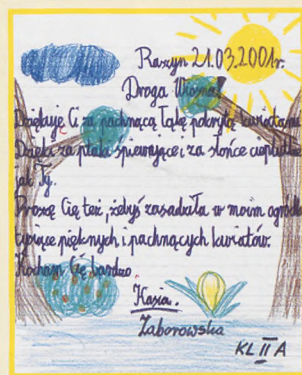 Raszyn 21.03.2001r.
Droga Wiosno!
Dziękuję Ci za pachnącą łąkę pokrytą kwiatami
Dzięki za ptaki śpiewające i za słońce cieplutkie
jak Ty.
Proszę Cię też, żebyś zasadziła w moim ogródku
tysiące pięknych i pachnących kwiatów.
Kocham Cię bardzo.
Kasia.
Zaborowska
KL II A